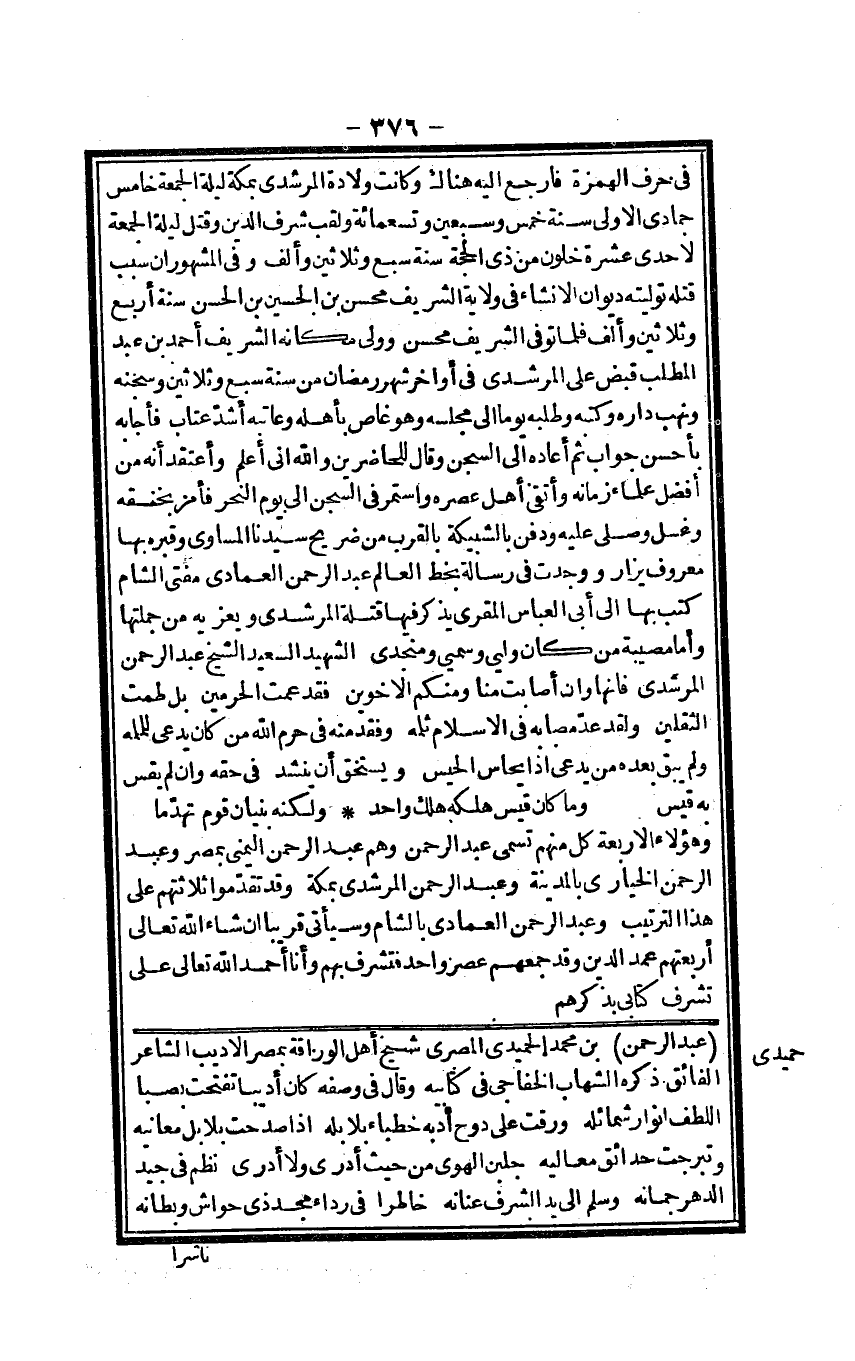 - ٣٧٦ -
فى حرف الهمزة فارجع اليه هناك وكانت ولادة المرشدى بمكة ليلة الجمعة خامس
جمادى الاولى سنة خمس وسبعين وتسعمائة ولقب شرف الدين وقتل ليلة الجمعة
لاحدى عشرة خلون من ذى الحجة سنة سبع وثلاثين وألف وفى المشهور ان سبب
قتله توليته ديوان الانشاء فى ولاية الشريف محسن بن الحسين بن الحسن سنة أربع
وثلاثين وألف فلما توفى الشريف محسن وولى مكانه الشريف أحمد بن عبد
المطلب قبض على المرشدى فى أواخر شهر رمضان من سنة سبع وثلاثين وسجنه
ونهب داره وكتبه وطلبه يوما الى مجلسه وهو غاص بأهله وعاتبه أشد عتاب فأجابه
بأحسن جواب ثم أعاده الى السجن وقال للحاضرين والله انى أعلم وأعتقد أنه من
أفضل علماء زمانه وأتقى أهل عصره واستمر فى السجن الى يوم النحر فأمر بخنقه
وغسل وصلى عليه ودفن بالشبيكة بالقرب من ضريح سيدنا المساوى وقبره بها
معروف يزار ووجدت فى رسالة بخط العالم عبد الرحمن العمادى مفتى الشام
كتب بها الى أبى العباس المقرى يذكر فيها قتلة المرشدى ويعزيه من جملتها
وأما مصيبة من كان وابى وسميى ومنجدى الشهيد السعيد الشيخ عبد الرحمن
المرشدى فانها وان أصابت منا ومنكم الاخوين فقد عمت الحرمين بل طمت
الثقلين ولقد عد مصابه فى الاسلام ثلمه وفقد منه فى حرم الله من كان يدعى للملمه
ولم يبق بعده من يدعى اذا يحاس الحيس ويستحق أن ينشد فى حقه وان لم يقس
به قيس وما كان قيس هلكه هلك واحد * ولكنه بنيان قوم تهدّما
وهؤلاء الاربعة كل منهم تسمى عبد الرحمن وهم عبد الرحمن اليمنى بمصر وعبد
الرحمن الخيارى بالمدينة وعبد الرحمن المرشدى بمكة وقد تقدّموا ثلاثتهم على
هذا الترتيب وعبد الرحمن العمادى بالشام وسيأتى قريبا ان شاء الله تعالى
أربعتهم عمد الدين وقد جمعهم عصر واحد فتشرف بهم وأنا أحمد الله تعالى على
تشرف كتابى بذكرهم
(عبد الرحمن) بن محمد الحميدى المصرى شيخ أهل الوراقة بمصر الاديب الشاعر
حميدى
الفائق ذكره الشهاب الخفاجى فى كتابيه وقال فى وصفه كان أديبا تفتحت بصبا
اللطف انوار شمائله ورقت على دوح أدبه خطباء بلابله اذا صدحت بلابل معانيه
وتبرجت حدائق معاليه جلبن الهوى من حيث أدرى ولا أدرى نظم فى جيد
الدهر جمانه وسلم الى يد الشرف عنانه خاطرا فى رداء مجد ذى حواش وبطانه
ناشرا